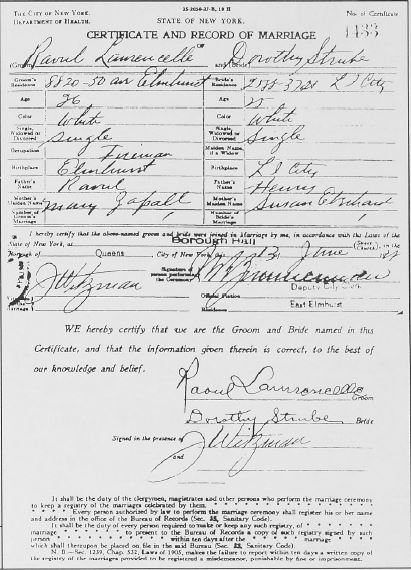 25-2050-37-B, 18 H
THE CITY OF NEW YORK.
DEPARTMENT OF HEALTH.
STATE OF NEW YORK.
No. of Certificate
1433
CERTIFICATE AND RECORD OF MARRIAGE
OF
(Groom) Raoul Laurencelle and (Bride) Dorothy Strube
Groom's Residence 8820-50 av Elmhurst Bride's Residence L I City
Age 26 Age 25
Color White Color White
Single, Widowed or Divorced Single Single, Widowed or Divorced Single
Occupation Fireman Maiden Name, if a Widow
Birthplace Elmhurst Birthplace L I City
Father's Name Raoul Father's Name Henry
Mother's Maiden Name Mary Mother's Maiden Name Susan
Number of Groom's Marriage 1 Number of Bride's Marriage 1
I hereby certify that the above-named groom and bride were joined in Marriage by me, in accordance with the Laws of the
State of New York, at Borough Hall (Street), (Church), in the
Borough of Queens City of New York, this June
Signature of person performing the Ceremony
J Witzman
Deputy City Clerk
Official Station
East Elmhurst
Residence
WE hereby certify that we are the Groom and Bride named in this
Certificate, and that the information given therein is correct, to the best of
our knowledge and belief.
Raoul Laurencelle Groom
Dorothy Strube Bride
Signed in the presence of J Witzman
and
It shall be the duty of the clergymen, magistrates and other persons who perform the marriage ceremony
to keep a registry of the marriages celebrated by them. * * * * *
* * * * * Every person authorized by law to perform the marriage ceremony shall register his or her name
and address in the office of the Bureau of Records (Sec. 33, Sanitary Code).
It shall be the duty of every person required to make or keep any such registry, of * * * * *
marriage * * * * * to present to the Bureau of Records a copy of such registry signed by such
person * * * * * within ten days after the * * * * * marriage * * * * *
which shall thereupon be placed on file in the said Bureau (Sec. 33, Sanitary Code).
N. B.—Sec. 1239, Chap. 532, Laws of 1905, makes the failure to report within ten days a written copy of
the registry of the marriages provided to be registered a misdemeanor, punishable by fine or imprisonment.